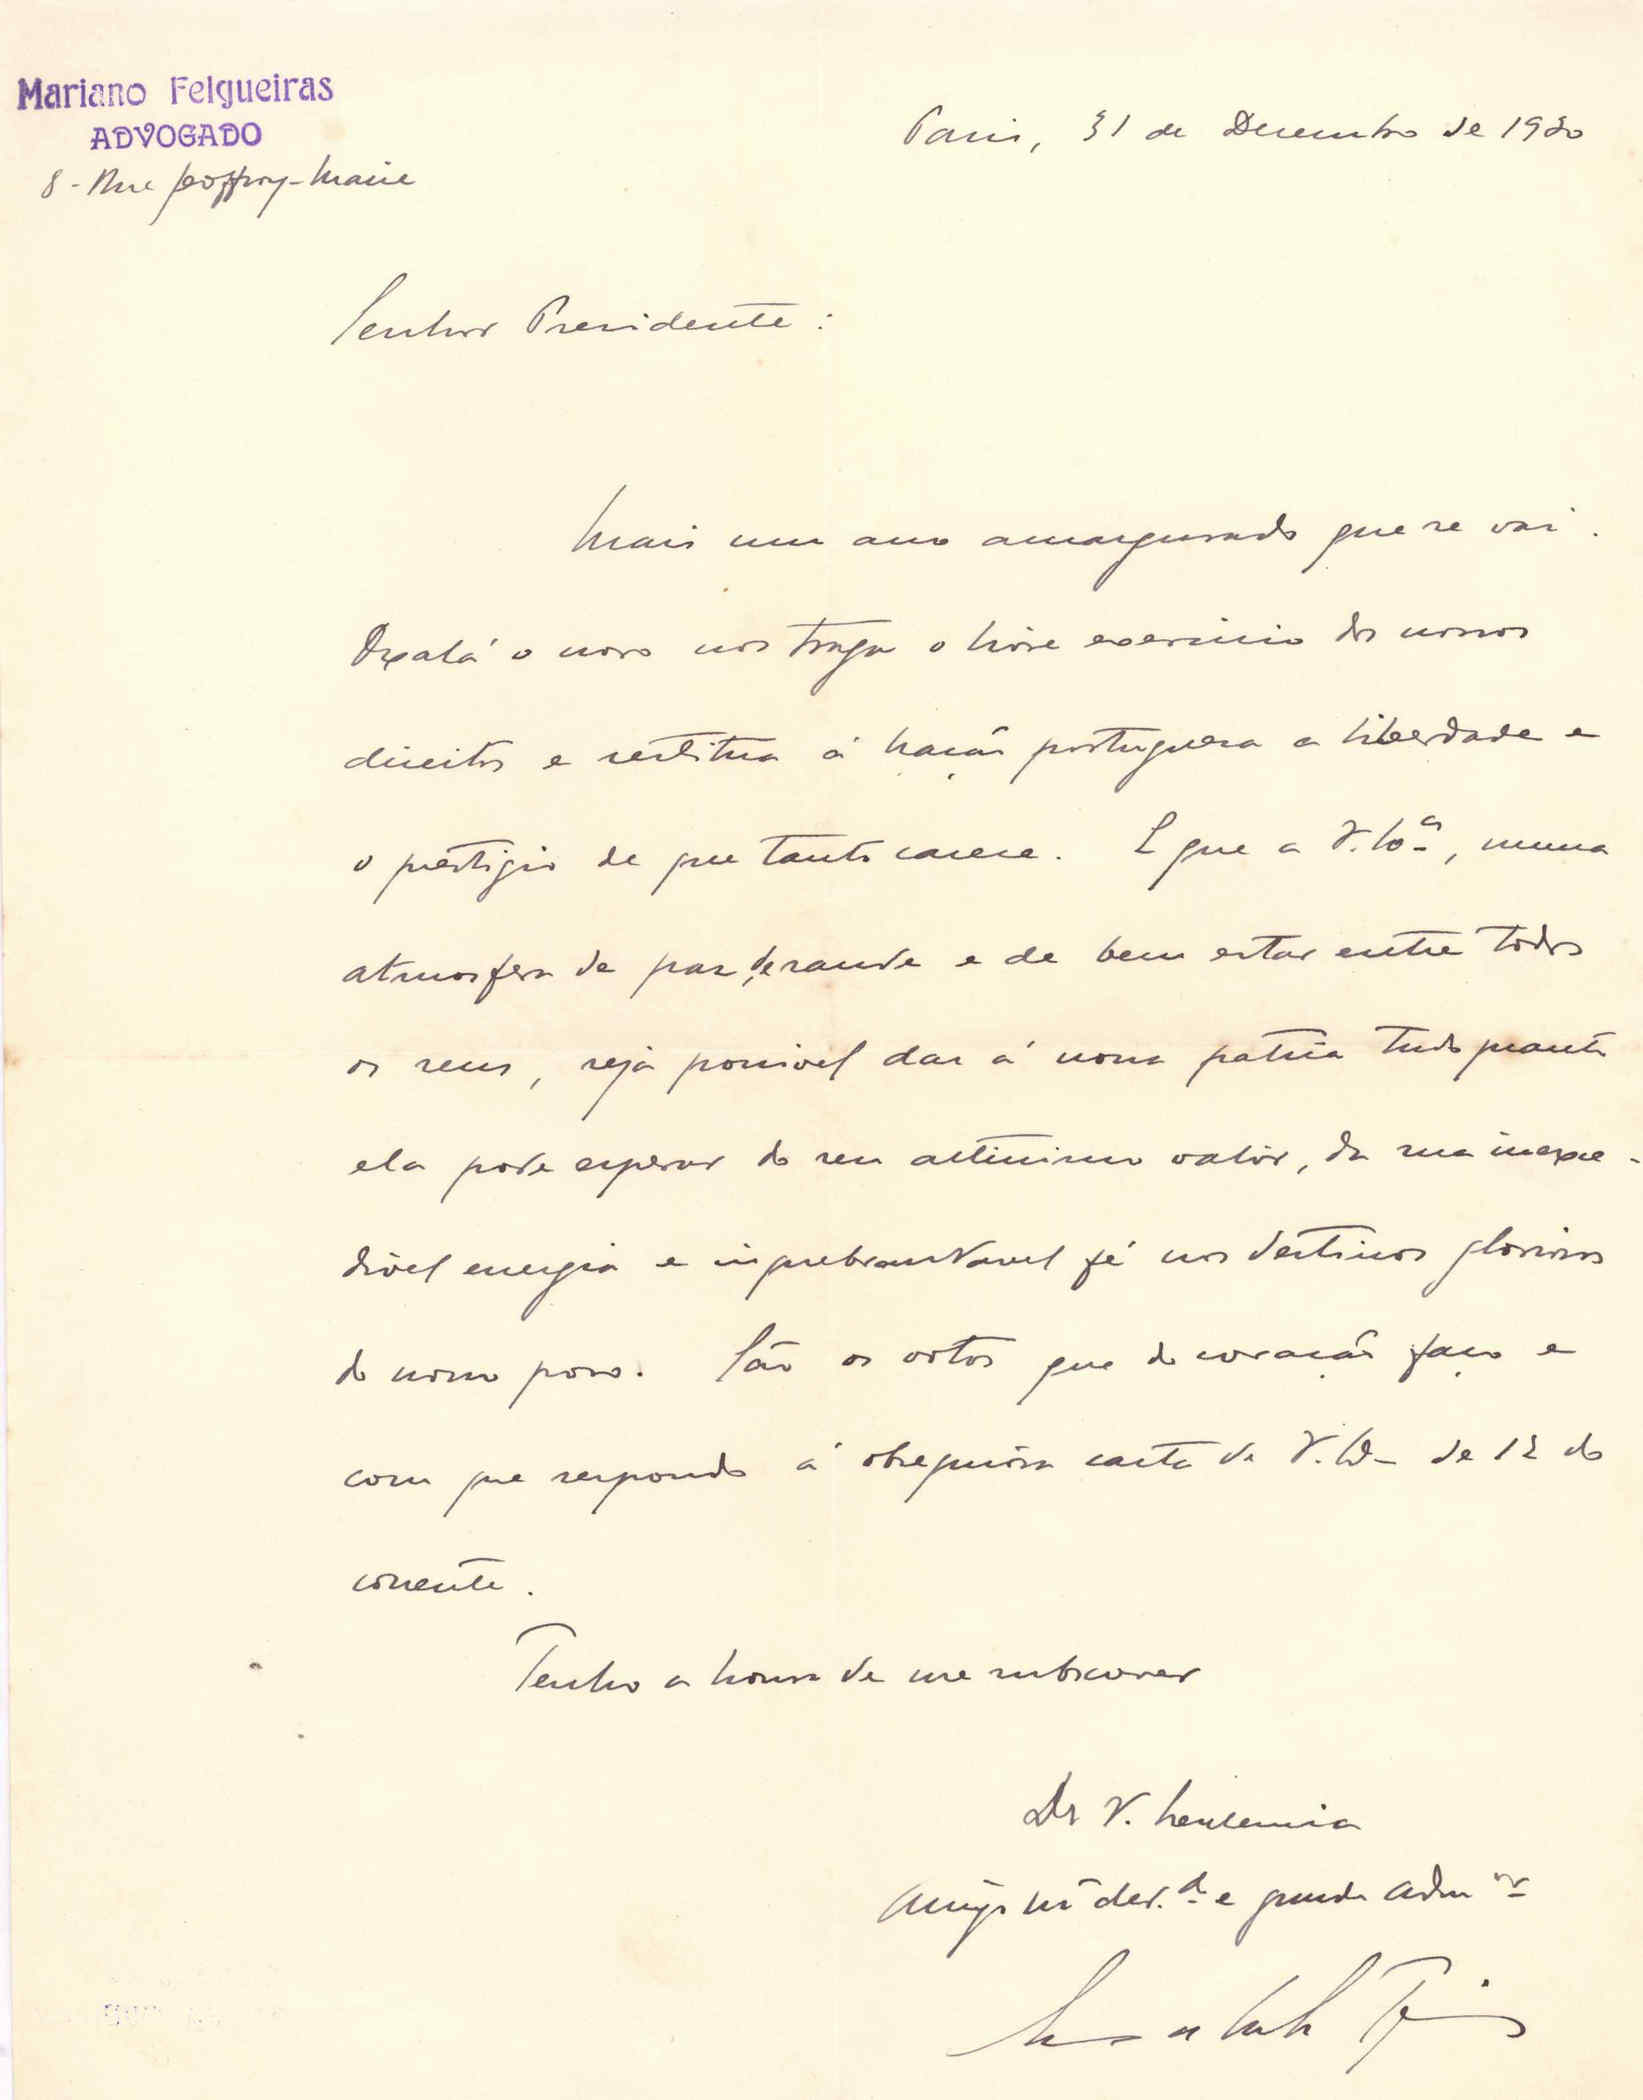 Mariano Felgueiras
ADVOGADO
8 - Rue Geoffroy-Marie
Paris, 31 de Dezembro de 1930
Senhor Presidente:
Mais um ano amargurado que se vai.
Oxalá o novo nos traga o livre exercicio dos nossos
direitos e restitua á Nação portuguesa a liberdade e
o prestigio de que tanto carece. E que a V. Ex.ª, numa
atmosfera de paz, de saude e de bem estar entre todos
os seus, seja possivel dar á nossa patria tudo quanto
ela pode esperar do seu altissimo valôr, da sua inexce-
divel energia e inquebrantavel fé nos destinos gloriosos
do nosso povo. São os votos que do coração faço e
com que respondo á obsequiosa carta de V. Ex.ª de 12 do
corrente.
Tenho a honra de me subscrever
De V. Excelencia
Amigo mt.º ded.º e grande adm.or